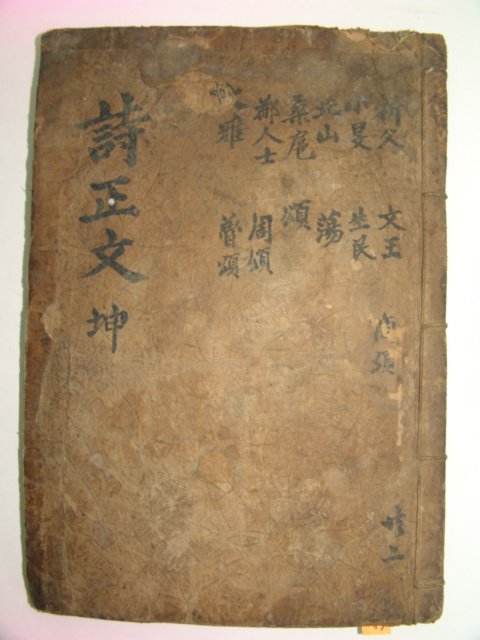 祈父 文王 商頌 共二
小旻 生民
北山 蕩
桑扈 頌
都人士 周頌
大雅 魯頌
詩正文 坤